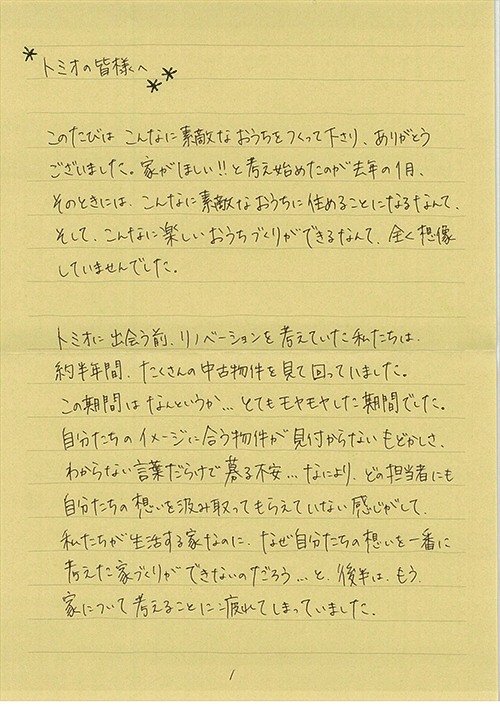 トミオの皆様へ
このたびは こんなに素敵な おうちをつくって下さり、ありがとう
ございました。家がほしい!!と考え始めたのが去年の1月、
そのときには、こんなに素敵なおうちに住めることになるなんて、
そして、こんなに楽しいおうちづくりができるなんて、全く想像
していませんでした。
トミオに出会う前、リノベーションを考えていた私たちは、
約半年間、たくさんの中古物件を見て回っていました。
この期間はなんというか…とてもモヤモヤした期間でした。
自分たちのイメージに合う物件が見付からないもどかしさ、
わからない言葉だらけで募る不安…なにより、どの担当者にも
自分たちの想いを汲み取ってもらえていない感じがして、
私たちが生活する家なのに、なぜ自分たちの想いを一番に
考えた家づくりができないのだろう…と、後半は、もう、
家について考えることに疲れてしまっていました。
1